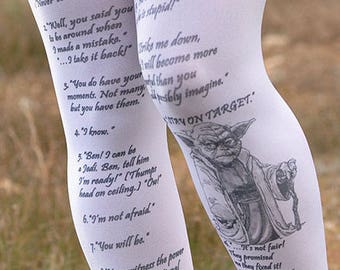 2. "Well, you said you
to be around when
I made a mistake."
"...I take it back!"
3. "You do have your
moments. Not many,
but you have them."
4. "I know."
5. "Ben! I can be
a Jedi. Ben, tell him
I'm ready!" (Thumps
head on ceiling.) "Ow!"
6. "I'm not afraid."
7. "You will be."
witness the power
is stupid!"
Strike me down,
I will become more
than you
possibly imagine."
STAY ON TARGET."
...It's not fair!
They promised
they fixed it!